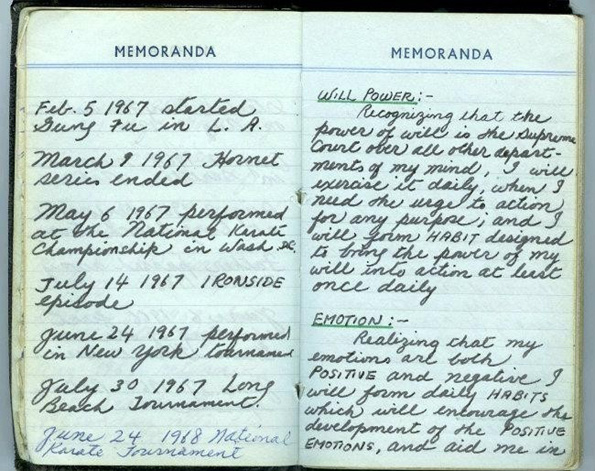 MEMORANDA
Feb. 5 1967 started
Gung Fu in L. A.
March 9 1967 Hornet
series ended
May 6 1967 performed
at the National Karate
Championship in Wash DC.
July 14 1967 IRONSIDE
episode
June 24 1967 performed
in New York tournament
July 30 1967 Long
Beach Tournament.
June 24 1968 National
Karate Tournament
MEMORANDA
WILL POWER:-
Recognizing that the
power of will is the Supreme
Court over all other depart-
ments of my mind, I will
exercise it daily, when I
need the urge to action
for any purpose; and I
will form HABIT designed
to bring the power of my
will into action at least
once daily
EMOTION:-
Realizing that my
emotions are both
POSITIVE and negative I
will form daily HABITS
which will encourage the
development of the POSITIVE
EMOTIONS, and aid me in